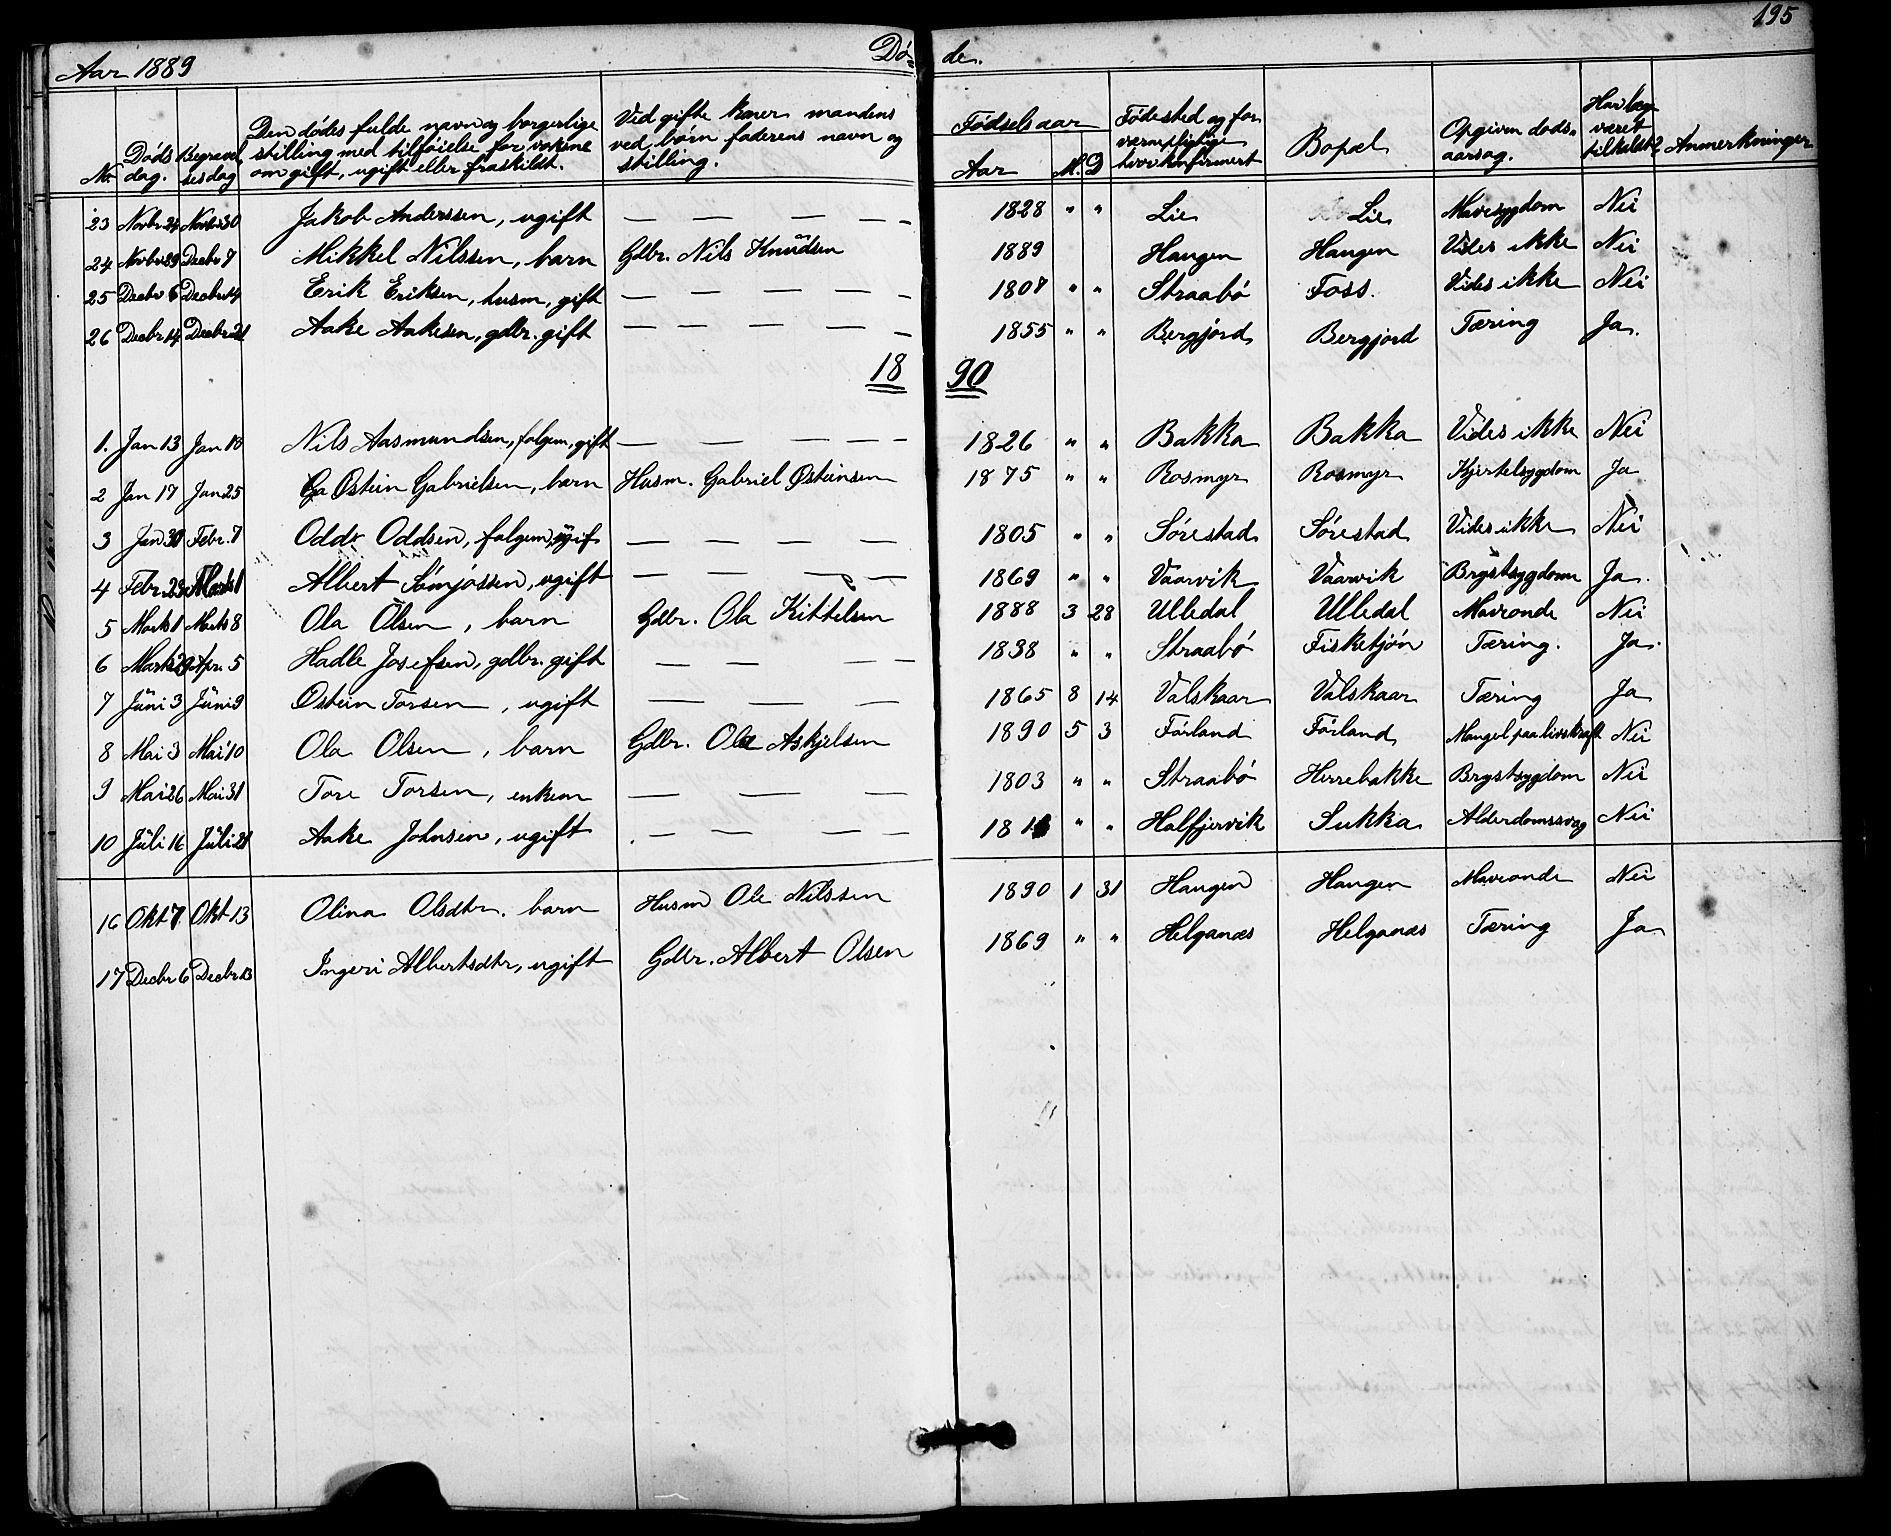 195
Aar 1889 Dø- de.
No. Døds dag. Begravel sesdag Den dødes fulde navn og borgerlige stilling med tilføielse for voksne om gift, ugift eller fraskildt. Ved gifte koner mandens ved børn faderens navn og stilling. Fødselsaar Aar M. D Fødested og for værnepligtige hvor konfirmert Bopæl Opgiven døds- aarsag. Har læge været tilkaldt? Anmerkninger
23 Novbr 24 Novbr 30 Jakob Anderssen, ugift — — — — - 1828 " " Lie Lie Mavesygdom Nei
24 Novbr 29 Decbr 7 Mikkel Nilssen, barn Gdbr. Nils Knudsen 1889 Haugen Haugen Vides ikke Nei
25 Decbr 6 Decbr 14 Erik Eriksen, husm, gift — — — — - 1807 " " Straabø Foss. Vides ikke Nei
26 Decbr 14 Decbr 21 Aake Aakesen, gdbr. gift — — — — - 1855 " " Bergjord Bergjord Tæring Ja.
18 90
1. Jan 13 Jan 18 Nils Aasmundsen, folgem, gift — — — — 1826 " " Bakka Bakka Vides ikke Nei
2 Jan 17 Jan 25 Østein Gabrielsen, barn Husm. Gabriel Østeinsen 1875 " " Rosmyr Rosmyr Kjertelsygdom Ja
3 Jan 30 Febr. 7 Odd Oddsen, folgem, — — — — 1805 " " Sørestad Sørestad Vides ikke Nei
4 Febr 23 Marts 1 Albert ugift — — — — 1869 " " Vaarvik Vaarvik Brystsygdom Ja.
5 Marts 1 Marts 8 Ola Olsen, barn Gdbr. Ola Kittelsen 1888 3 28 Ulledal Ulledal Maveonde Nei
6 Marts 29 Apr. 5 Hadle Josefsen, gdbr. gift — — — — 1838 " " Straabø Fisketjøn Tæring. Ja.
7 Juni 3 Juni 9 Østein Torsen, ugift — — — — 1865 8 14 Valskaar Valskaar Tæring Ja
8 Mai 3 Mai 10 Ola Olsen, barn Gdbr. Ola Askjelsen 1890 5 3 Førland Førland Mangel paa livskraft Nei
9 Mai 26 Mai 31 Tore Torsen, enkem — — — — 1803 " " Straabø Herrebakke Brystsygdom Nei
10 Juli 16 Juli 21 Aake Johnsen, ugift . — — — — 181 " " Halfjervik Sukka Alderdomssvag Nei
16 Okt 7 Okt 13 Olina Olsdtr. barn Husm Ole Nilssen 1890 1 31 Haugen Haugen Maveonde Nei
17 Decbr 6 Decbr 13 Ingeri Albertsdtr, ugift Gdbr. Albert Olsen 1869 " " Helganæs Helganæs Tæring Ja